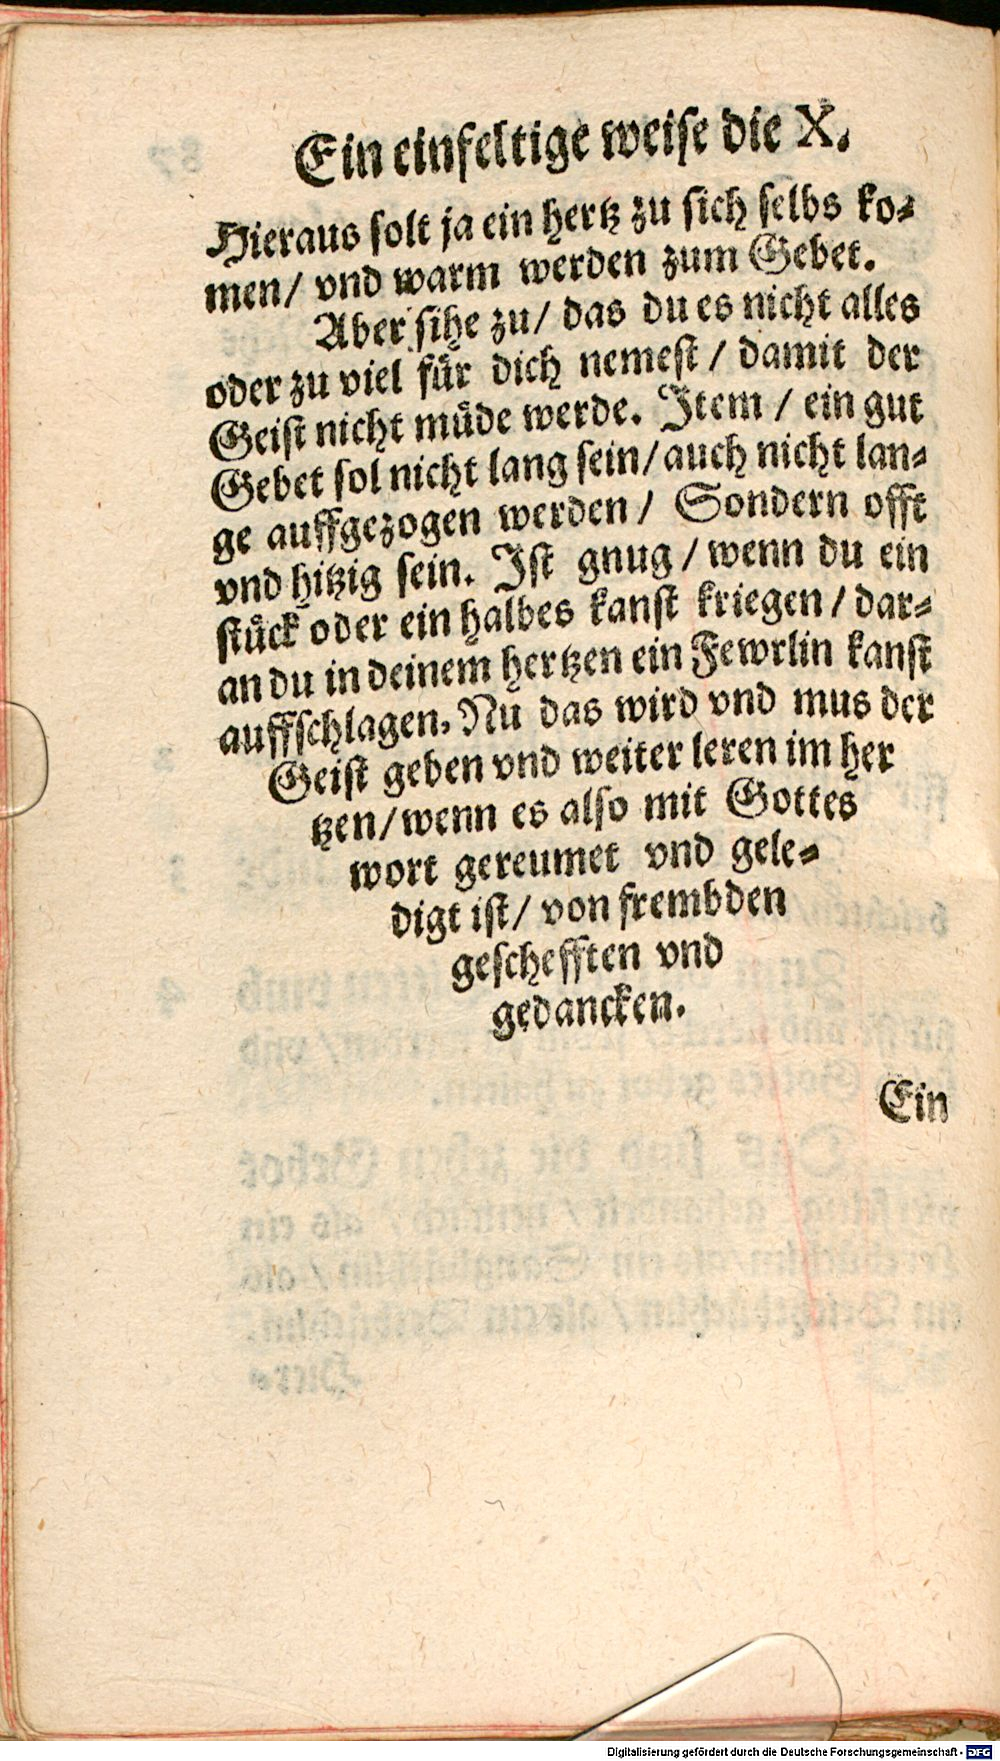 Ein einfeltige weise die X.
Hieraus solt ja ein hertz zu sich selbs ko-
men/ vnd warm werden zum Gebet.
Aber sihe zu/ das du es nicht alles
oder zu viel für dich nemest/ damit der
Geist nicht müde werde. Item/ ein gut
Gebet sol nicht lang sein/ auch nicht lan-
ge auffgezogen werden/ Sondern offt
vnd hitzig sein. Ist gnug/ wenn du ein
stück oder ein halbes kanst kriegen/ dar-
an du in deinem hertzen ein Fewrlin kanst
auffschlagen. Nu das wird vnd mus der
Geist geben vnd weiter leren im her
tzen/ wenn es also mit Gottes
wort gereumet vnd gele-
digt ist/ von frembden
geschefften vnd
gedancken.
Ein
Digitalisierung gefördert durch die Deutsche Forschungsgemeinschaft - DFG